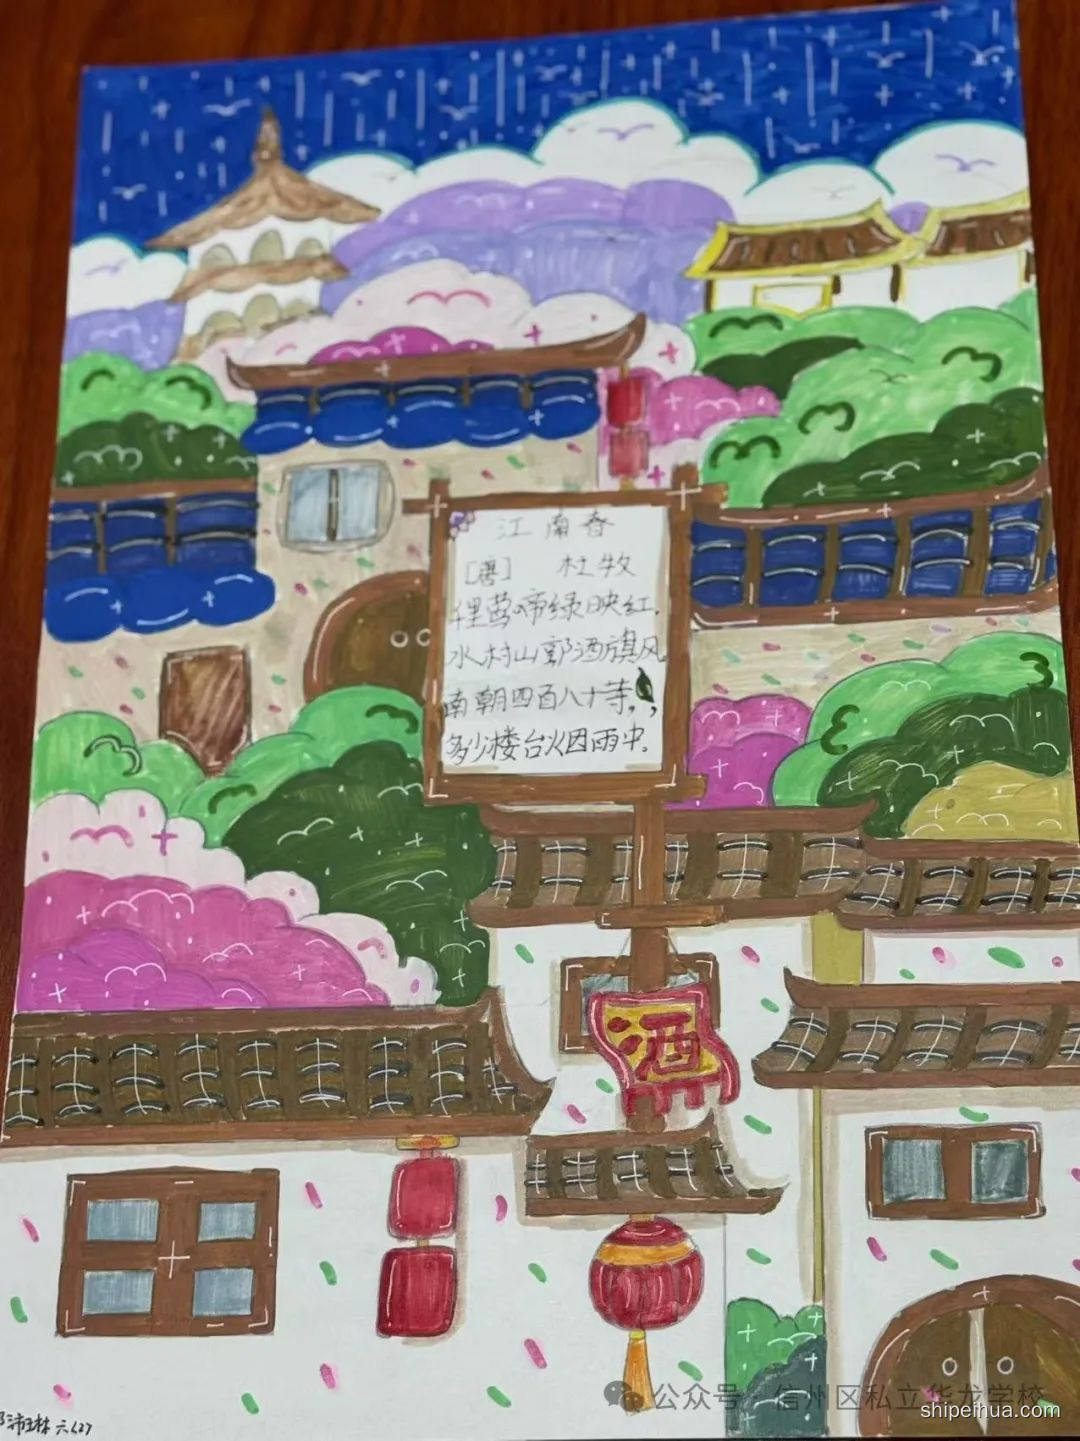 江南春
[唐] 杜牧
俚莺啼绿映红.
水村山郭酒旗风
南朝四百八十寺,,
多少楼台火因雨中.
酒
六(2)
公众号 · 信州区私立华龙学校
shipeihua.com